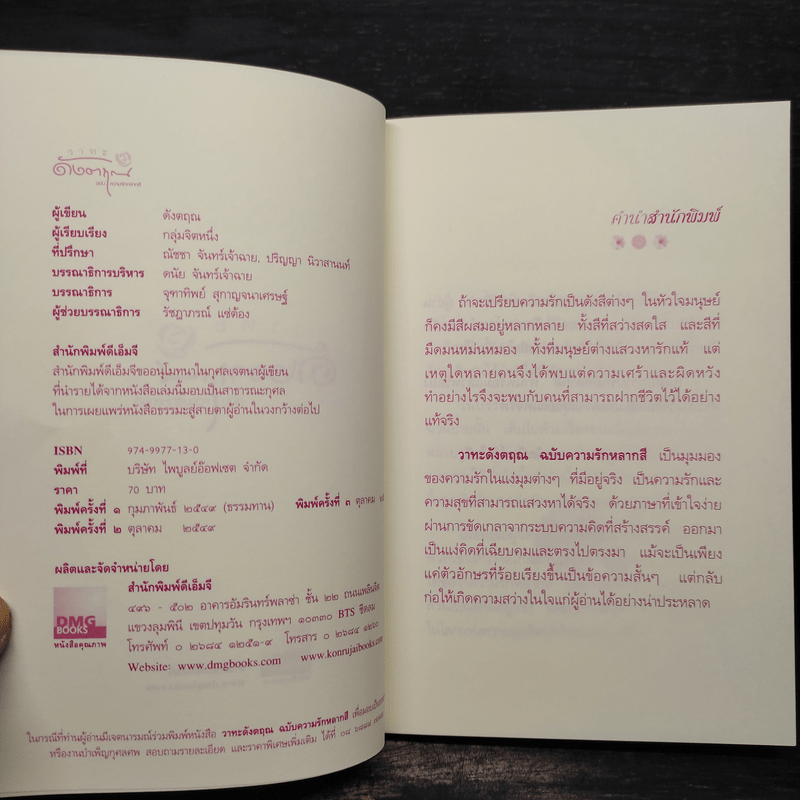 วาทะ
ดังตฤณ
ตอน ความรักหลากสี
ผู้เขียน ดังตฤณ
ผู้เรียบเรียง กลุ่มจิตหนึ่ง
ที่ปรึกษา ณัชชา จันทร์เจ้าฉาย, ปริญญา นิวาสานนท์
บรรณาธิการบริหาร ดนัย จันทร์เจ้าฉาย
บรรณาธิการ จุฑาทิพย์ สุกาญจนาเศรษฐ์
ผู้ช่วยบรรณาธิการ รัชฎาภรณ์ แซ่ต้อง
สำนักพิมพ์ดีเอ็มจี
สำนักพิมพ์ดีเอ็มจีขออนุโมทนาในกุศลเจตนาผู้เขียน
ที่นำรายได้จากหนังสือเล่มนี้มอบเป็นสาธารณะกุศล
ในการเผยแพร่หนังสือธรรมะสู่สายตาผู้อ่านในวงกว้างต่อไป
ISBN 974-9977-13-0
พิมพ์ที่ บริษัท ไพบูลย์อ๊อฟเซต จำกัด
ราคา 70 บาท
พิมพ์ครั้งที่ ๑ กุมภาพันธ์ ๒๕๔๙ (ธรรมทาน) พิมพ์ครั้งที่ ๓ ตุลาคม
พิมพ์ครั้งที่ ๒ ตุลาคม ๒๕๔๙
ผลิตและจัดจำหน่ายโดย
สำนักพิมพ์ดีเอ็มจี
๔๙๖ - ๕๐๒ อาคารอัมรินทร์พลาซ่า ชั้น ๒๒ ถนนเพลินจิต
แขวงลุมพินี เขตปทุมวัน กรุงเทพฯ ๑๐๓๓๐ BTS ชิดลม
โทรศัพท์ ๐ ๒๖๘๔ ๑๒๕๑-๙ โทรสาร ๐ ๒๖๘๔ ๑๒๖๐
Website: www.dmgbooks.com www.konrujaibooks.com
DMG
BOOKS
หนังสือคุณภาพ
ในกรณีที่ท่านผู้อ่านมีเจตนารมณ์ร่วมพิมพ์หนังสือ วาทะดังตฤณ ฉบับความรักหลากสี เพื่อมอบเป็น
หรืองานบำเพ็ญกุศลศพ สอบถามรายละเอียด และราคาพิเศษเพิ่มเติม ได้ที่
คำนำสำนักพิมพ์
ถ้าจะเปรียบความรักเป็นดังสีต่างๆ ในหัวใจมนุษย์
ก็คงมีสีผสมอยู่หลากหลาย ทั้งสีที่สว่างสดใส และสีที่
มืดมนหม่นหมอง ทั้งที่มนุษย์ต่างแสวงหารักแท้ แต่
เหตุใดหลายคนจึงได้พบแต่ความเศร้าและผิดหวัง
ทำอย่างไรจึงจะพบกับคนที่สามารถฝากชีวิตไว้ได้อย่าง
แท้จริง
วาทะดังตฤณ ฉบับความรักหลากสี เป็นมุมมอง
ของความรักในแง่มุมต่างๆ ที่มีอยู่จริง เป็นความรักและ
ความสุขที่สามารถแสวงหาได้จริง ด้วยภาษาที่เข้าใจง่าย
ผ่านการขัดเกลาจากระบบความคิดที่สร้างสรรค์ ออกมา
เป็นแง่คิดที่เฉียบคมและตรงไปตรงมา แม้จะเป็นเพียง
แค่ตัวอักษรที่ร้อยเรียงขึ้นเป็นข้อความสั้นๆ แต่กลับ
ก่อให้เกิดความสว่างในใจแก่ผู้อ่านได้อย่างน่าประหลาด